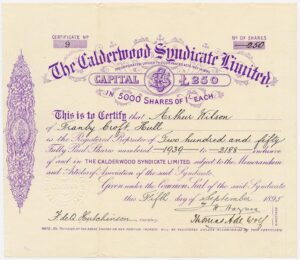 CERTIFICATE Nº
9
Nº OF SHARES
250
The Calderwood Syndicate Limited.
CAPITAL £250
IN 5000 SHARES OF 1/- EACH.
This is to Certify that Arthur Wilson
of Tranby Croft Hull
is the Registered Proprietor of Two hundred and fifty
Fully Paid Shares numbered 1939 to 2188 inclusive
of and in THE CALDERWOOD SYNDICATE LIMITED, subject to the Memorandum
and Articles of Association of the said Syndicate.
Given under the Common Seal of the said Syndicate
this Fifth day of September 1895
F. de A. Hutchinson Secretary